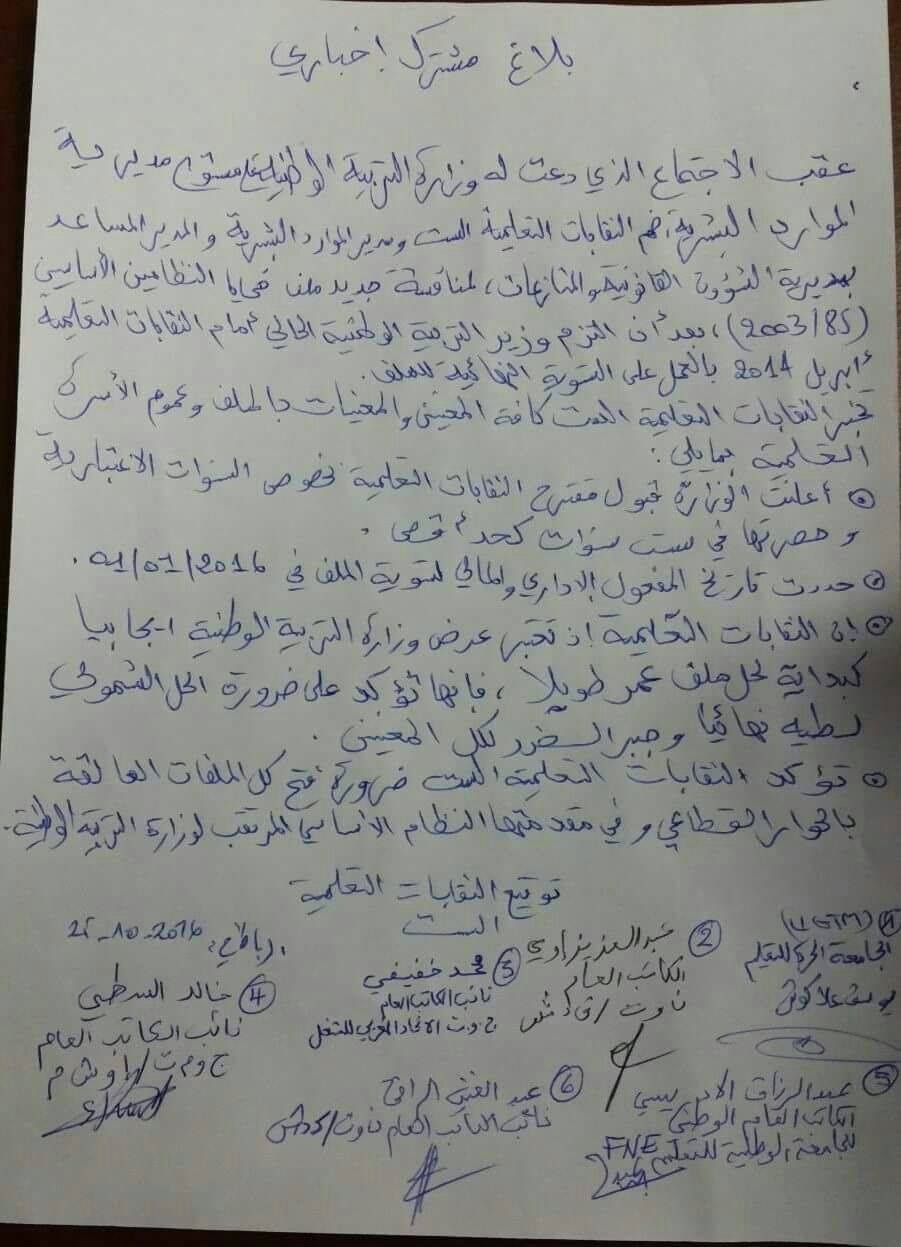 بلاغ مشترك إخباري
عقب الاجتماع الذي دعت له وزارة التربية الوطنية على مستوى مديرية
الموارد البشرية، ضم النقابات التعليمية الست ومدير الموارد البشرية والمدير المساعد
بمديرية الشؤون القانونية والمنازعات، لمناقشة جديد ملف ضحايا النظامين الأساسيين
(2003/85)، بعد أن التزم وزير التربية الوطنية الحالي أمام النقابات التعليمية
أبريل 2014 بالعمل على التسوية النهائية للملف.
تخبر النقابات التعليمية الست كافة المعنيين والمعنيات بالملف وعموم الأسرة
التعليمية بمايلي:
• أعلنت الوزارة قبول مقترح النقابات التعليمية بخصوص السنوات الاعتبارية
وحصرتها في ست سنوات كحد أقصى.
• حددت تاريخ المفعول الإداري والمالي لتسوية الملف في 01/01/2016.
• إن النقابات التعليمية إذ تعتبر عرض وزارة التربية الوطنية إيجابيا
كبداية لحل ملف عمر طويلا، فإنها تؤكد على ضرورة الحل الشمولي
لطيه نهائيا وجبر الضرر لكل المعنيين.
• تؤكد النقابات التعليمية الست ضرورة فتح كل الملفات العالقة
بالحوار القطاعي وفي مقدمتها النظام الأساسي المرتقب لوزارة التربية الوطنية.
توقيع النقابات التعليمية
الست
الرباط في: 25-10-2016
① (UGTM)
الجامعة الحرة للتعليم
يوسف علاكوش
② عبد العزيز إوي
الكاتب العام
ن و ت / ف د ش
③ محمد خفيفي
نائب الكاتب العام
ج و ت الاتحاد المغربي للشغل
④ خالد السطي
نائب الكاتب العام
ج و م ت / إ و ش م
⑤ عبد الرزاق الإدريسي
الكاتب العام الوطني
للجامعة الوطنية للتعليم FNE
⑥ عبد الغني الراقي
نائب الكاتب العام ن و ت / ك د ش